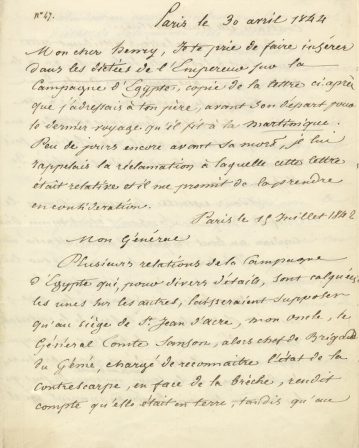 n° 47.
Paris le 30 avril 1844
Mon cher henry, Je te prie de faire insérer
dans les dictées de l'Empereur sur la
Campagne d'Egypte, copie de la lettre ci après
que j'adressais à ton père, avant son départ pour
le dernier voyage qu'il fit à la martinique.
Peu de jours encore avant sa mort, je lui
rappelais la réclamation à laquelle cette lettre
était relative et il me promit de la prendre
en considération.
Paris le 15 Juillet 1842
Mon Général
Plusieurs relations de la Campagne
d'Egypte qui, pour divers détails, sont calquées
les unes sur les autres, laisseraient supposer
qu'au siège de St. Jean d'acre, mon oncle, le
Général Comte Sanson, alors chef de Brigade
du Génie, chargé de reconnaitre l'état de la
contrescarpe, en face de la brèche, rendit
compte qu'elle était en terre, tandis qu'au